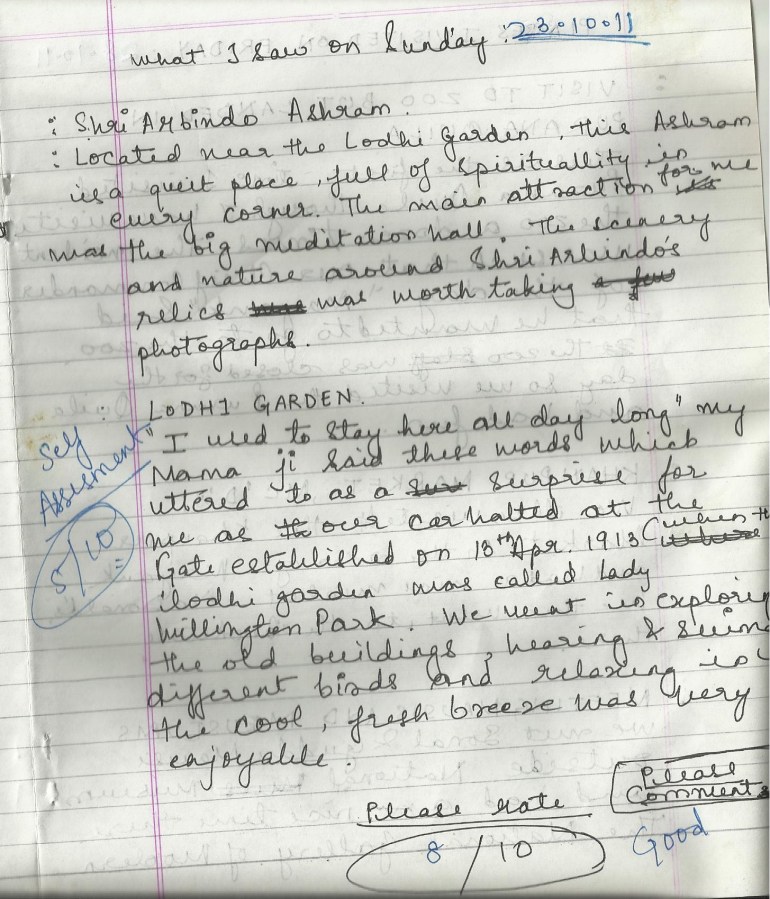 What I saw on Sunday : 23.10.11
: Shri Arbindo Ashram.
: Located near the Lodhi Garden, this Ashram
is a queit place, full of spirituallity in
every corner. The main attraction for me
was the big meditation hall. The scenery
and nature around Shri Arbindo's
relics was worth taking a few
photographs.
: LODHI GARDEN.
"I used to stay here all day long" my
Mama ji said these words which
uttered to as a surprise for
me as our car halted at the
Gate established on 13th Apr. 1913 (when
lodhi garden was called Lady
Willington Park. We went in exploring
the old buildings, hearing & seeing
different birds and relaxing in
the cool, fresh breeze was very
enjoyable.
Self
Assesment
5/10
Please rate
8/10
Please
Comments
Good